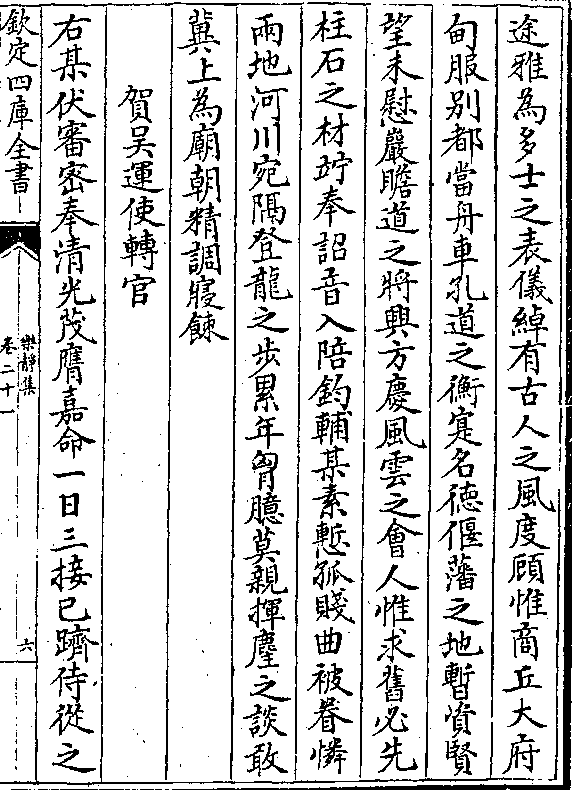 途雅為多士之表儀綽有古人之風度顧惟商丘大府
甸服别都當舟車孔道之衝寔名徳偃藩之地暫資賢
望未慰巖瞻道之將興方慶風雲之會人惟求舊必先
柱石之材竚奉詔音入陪鈞輔某素慙孤賤曲被眷憐
兩地河川宛隔登龍之步累年胷臆莫親揮麈之談敢
冀上為廟朝精調寢餗
賀吴運使轉官
右某伏審密奉清光茂膺嘉命一日三接已躋侍從之
欽定四庫全書
樂靜集
卷二十一
六